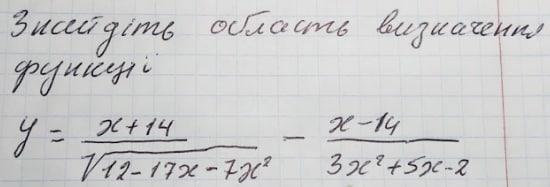 Знайдіть область визначення
функції
y = (x+14)/√(12-17x-7x²) - (x-14)/(3x²+5x-2)